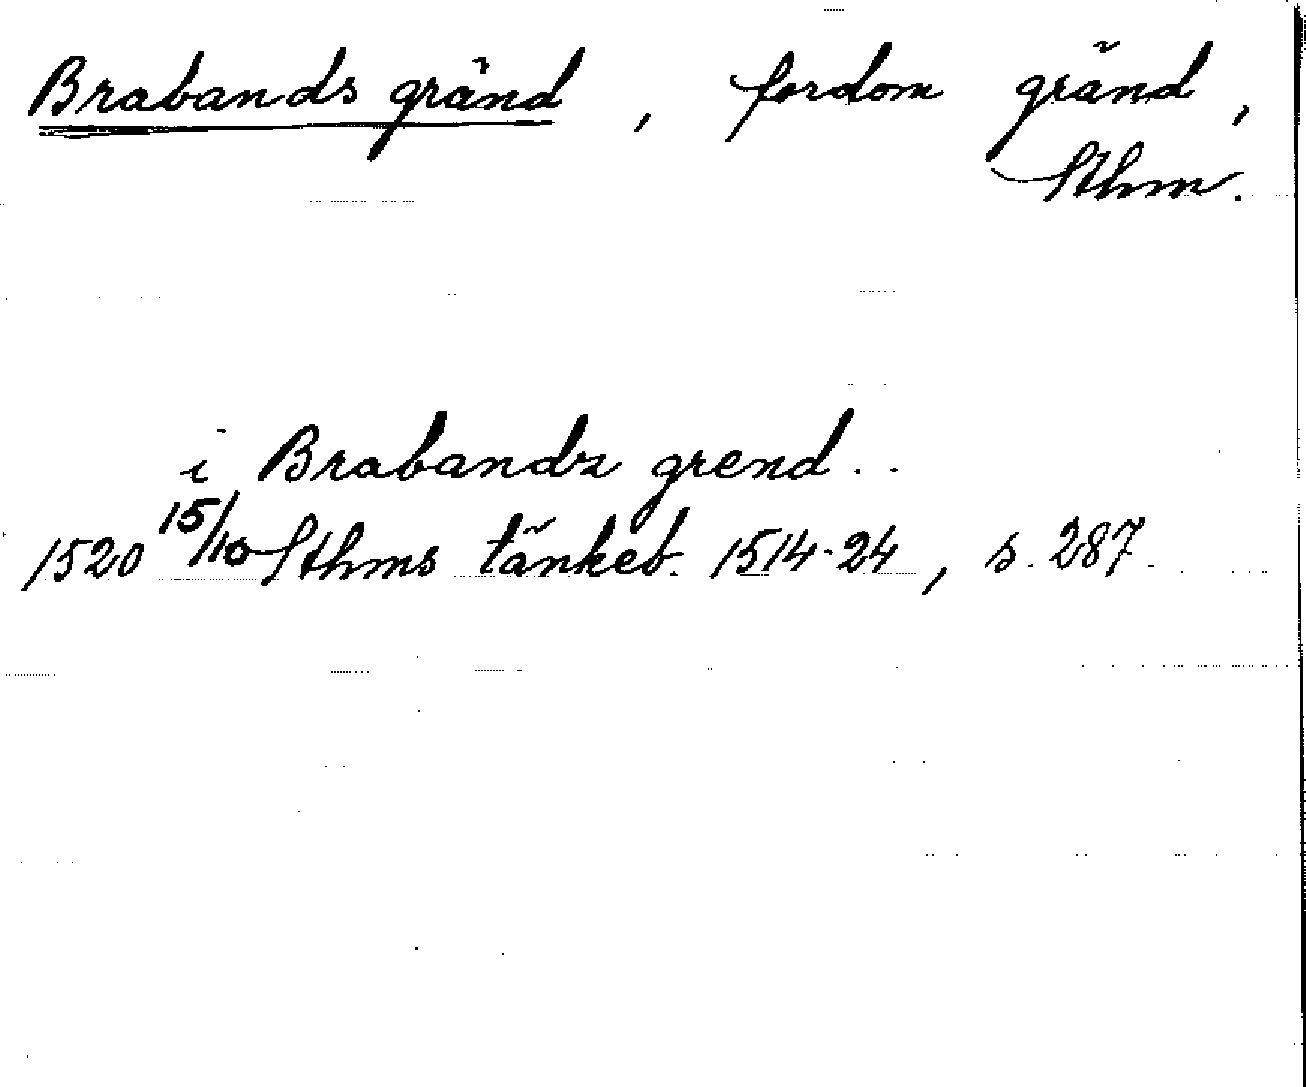 Brabands gränd, fordom gränd,
Sthm.
i Brabandz grend . .
1520 15/10 Sthms tänkeb. 1514-24, s. 287